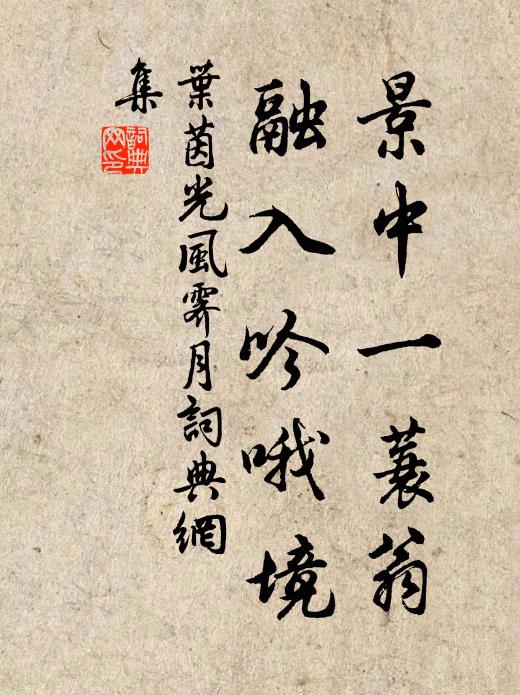 景中一蓑翁
融入吟哦境
葉茵光風霽月詞典網
集
詞典網印